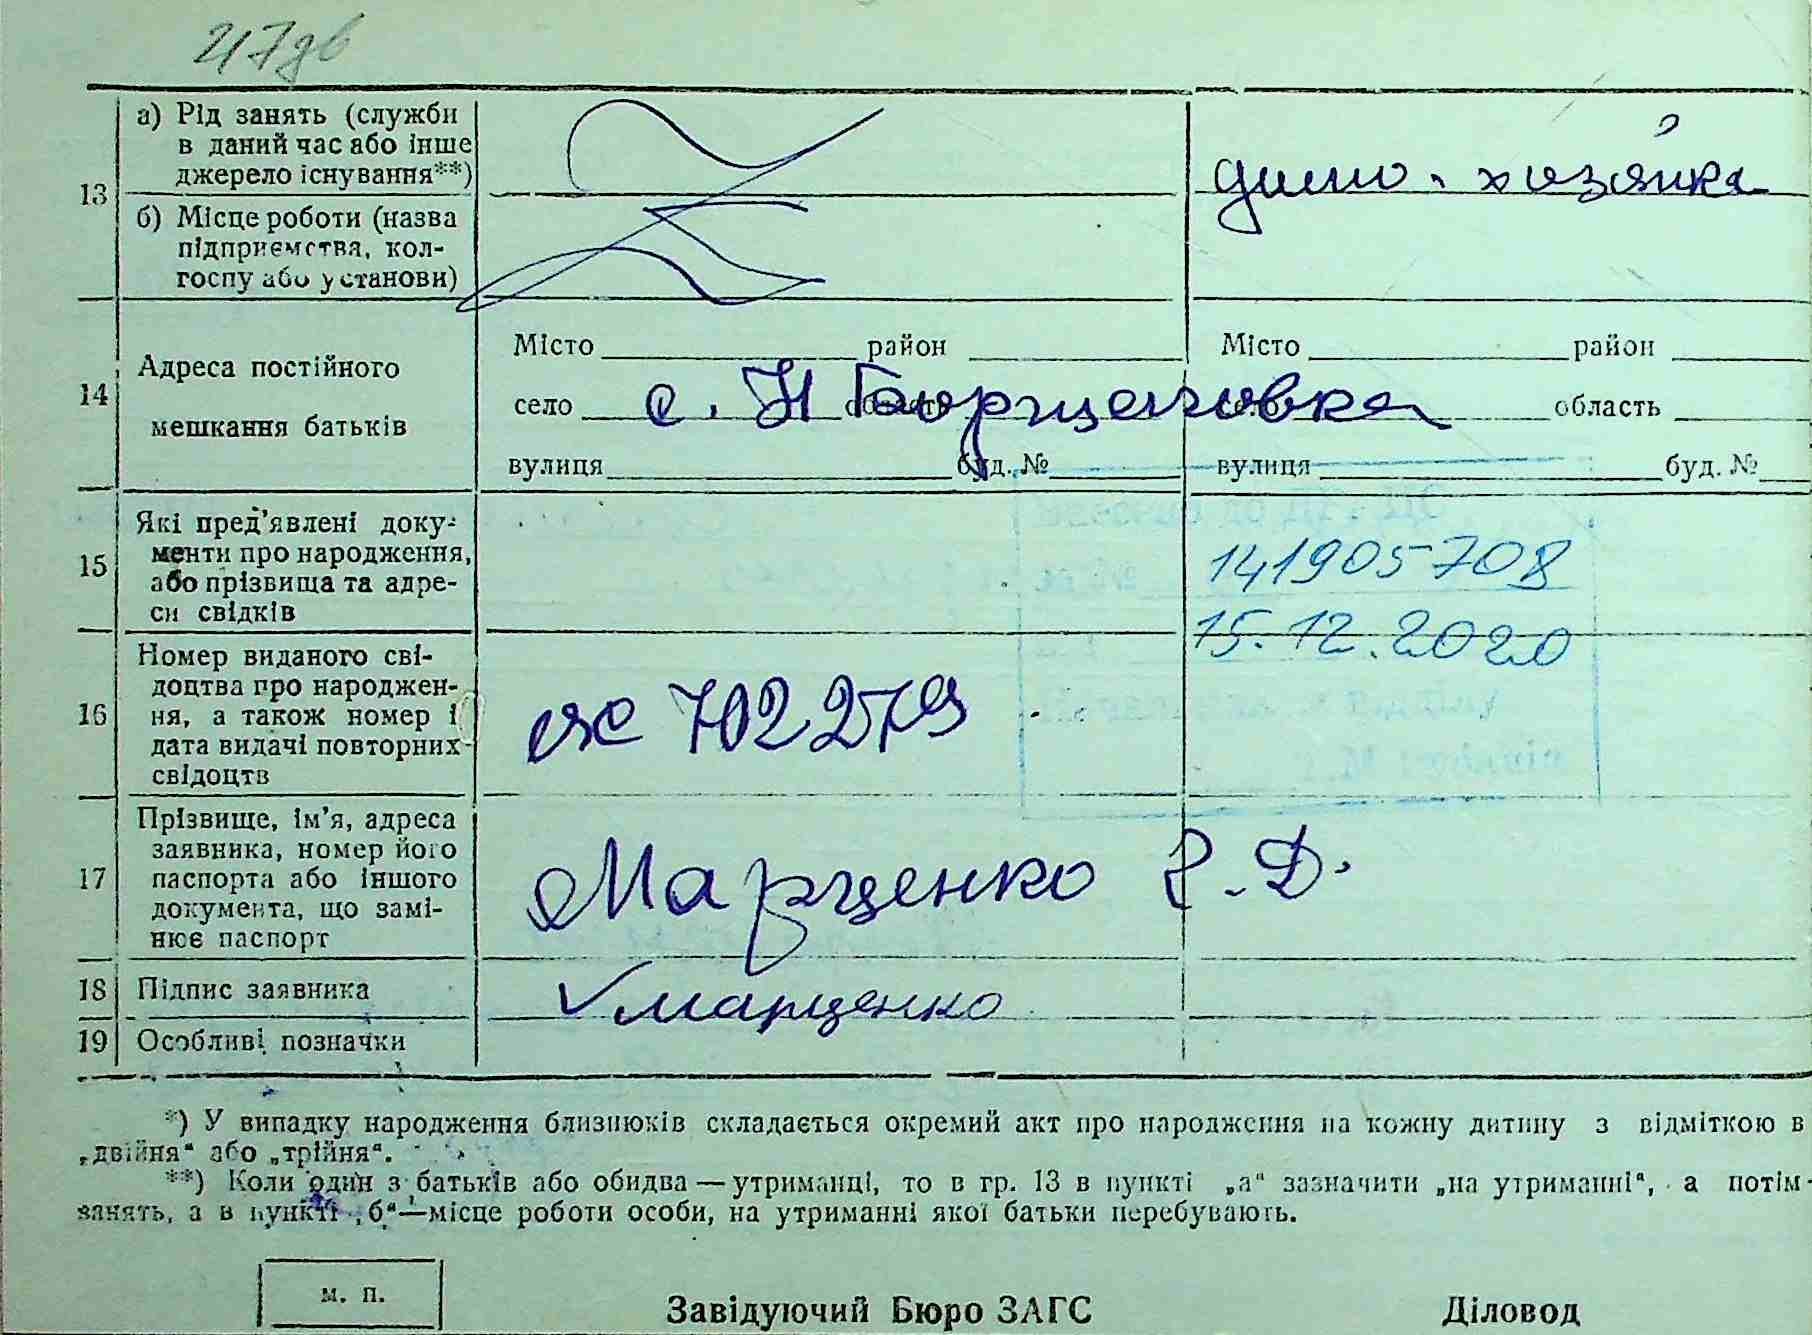 217дв
13
а) Рід занять (служби в даний час або інше джерело існування**)
домо-хозяйка
б) Місце роботи (назва підприємства, колгоспу або установи)
14
Адреса постійного мешкання батьків
Місто район Місто район
село область село область
с. Н
вулиця буд. № вулиця буд. №
15
Які пред'явлені документи про народження, або прізвища та адреси свідків
141905708
15.12.2020
16
Номер виданого свідоцтва про народження, а також номер і дата видачі повторних свідоцтв
702279
17
Прізвище, ім'я, адреса заявника, номер його паспорта або іншого документа, що замінює паспорт
Марценко Г. Д.
18 Підпис заявника
Марценко
19 Особливі позначки
*) У випадку народження близнюків складається окремий акт про народження на кожну дитину з відміткою в
„двійня“ або „трійня“.
**) Коли один з батьків або обидва — утриманці, то в гр. 13 в пункті „а“ зазначити „на утриманні“, а потім
занять, а в пункті „б“—місце роботи особи, на утриманні якої батьки перебувають.
м. п.
Завідуючий Бюро ЗАГС Діловод